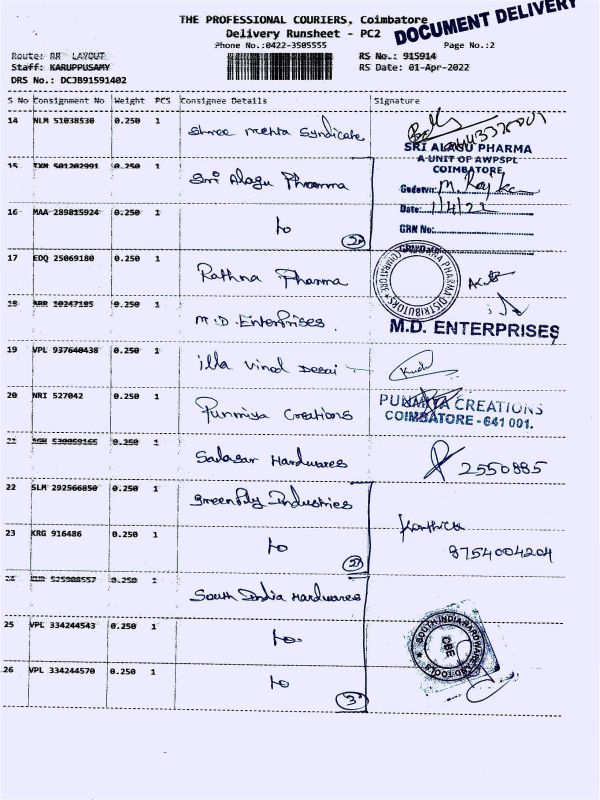 THE PROFESSIONAL COURIERS, Coimbatore
Delivery Runsheet - PC2
DOCUMENT DELIVERY
Phone No.:0422-3505555 Page No.:2
Route: RR LAYOUT RS No.: 915914
Staff: KARUPPUSAMY RS Date: 01-Apr-2022
DRS No.: DCJB91591402
S No Consignment No Weight PCS Consignee Details Signature
14 NLM 51038530 0.250 1 Shree Mehta Syndicate
SRI ALAGU PHARMA
A UNIT OF AWPSPL
COIMBATORE
15 501202991 0.250 1 Sri Alagu Pharma
Godown:
16 MAA 289815924 0.250 1 to 2
Date: 1/4/22
GRN No:
GRN Date
17 EDQ 25069180 0.250 1 Rathna Pharma
PHARMA DISTRIBUTORS * COIMBATORE *
18 10247185 0.250 1 M.D. Enterprises.
M.D. ENTERPRISES
19 VPL 937640438 0.250 1 illa Vinod Desai
20 NRI 527042 0.250 1 Punmiya Creations
PUNMIYA CREATIONS
COIMBATORE - 641 001.
21 530059165 0.250 1 Sadasar Hardwares 2550885
22 SLM 292566850 0.250 1 Greenply Industries
Karthick
8754004204
23 KRG 916486 0.250 1 to 2
24 525908557 0.250 1 South India Hardwares
25 VPL 334244543 0.250 1 to
SOUTH INDIA HARDWARE AND TOOLS
CBE
26 VPL 334244570 0.250 1 to 3